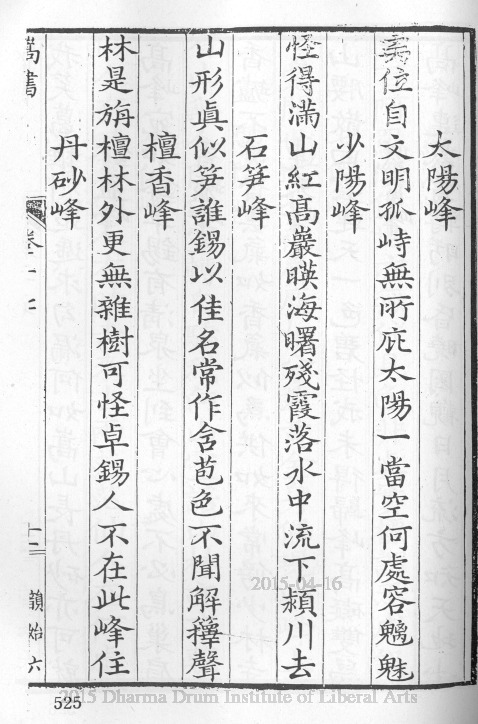 太陽峰
离位自文明孤峙無所庇太陽一當空何處容魑魅
少陽峰
怪得滿山紅高巖暎海曙殘霞落水中流下潁川去
石笋峰
山形眞似笋誰錫以佳名常作含苞色不聞解籜聲
檀香峰
林是旃檀林外更無雜樹可怪卓錫人不在此峰住
丹砂峰
嵩書 卷十七 十二 韻始六
2015-04-16
2015 Dharma Drum Institute of Liberal Arts
525